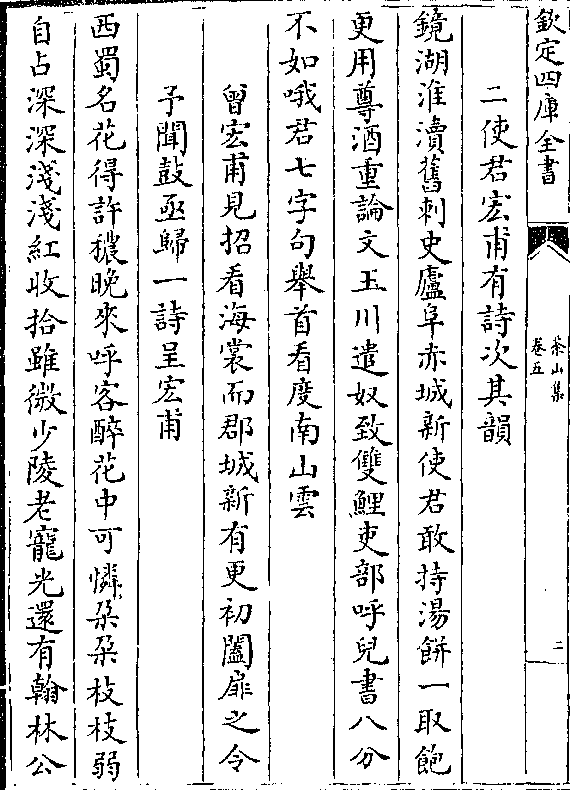 欽定四庫全書
茶山集
卷五
二
二使君宏甫有詩次其韻
鏡湖淮瀆舊刺史廬阜赤城新使君敢持湯餅一取飽
更用尊酒重論文玉川遣奴致雙鯉吏部呼兒書八分
不如哦君七字句舉首看度南山雲
曾宏甫見招看海裳而郡城新有更初闔扉之令
予聞鼓亟歸一詩呈宏甫
西蜀名花得許穠晚來呼客醉花中可憐朶朶枝枝弱
自占深深淺淺紅收拾雖微少陵老寵光還有翰林公